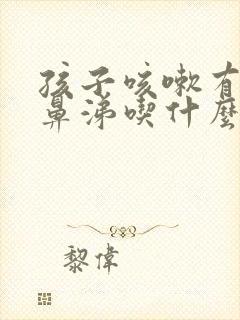 孩子咳嗽有
鼻涕喫什麼
黎偉